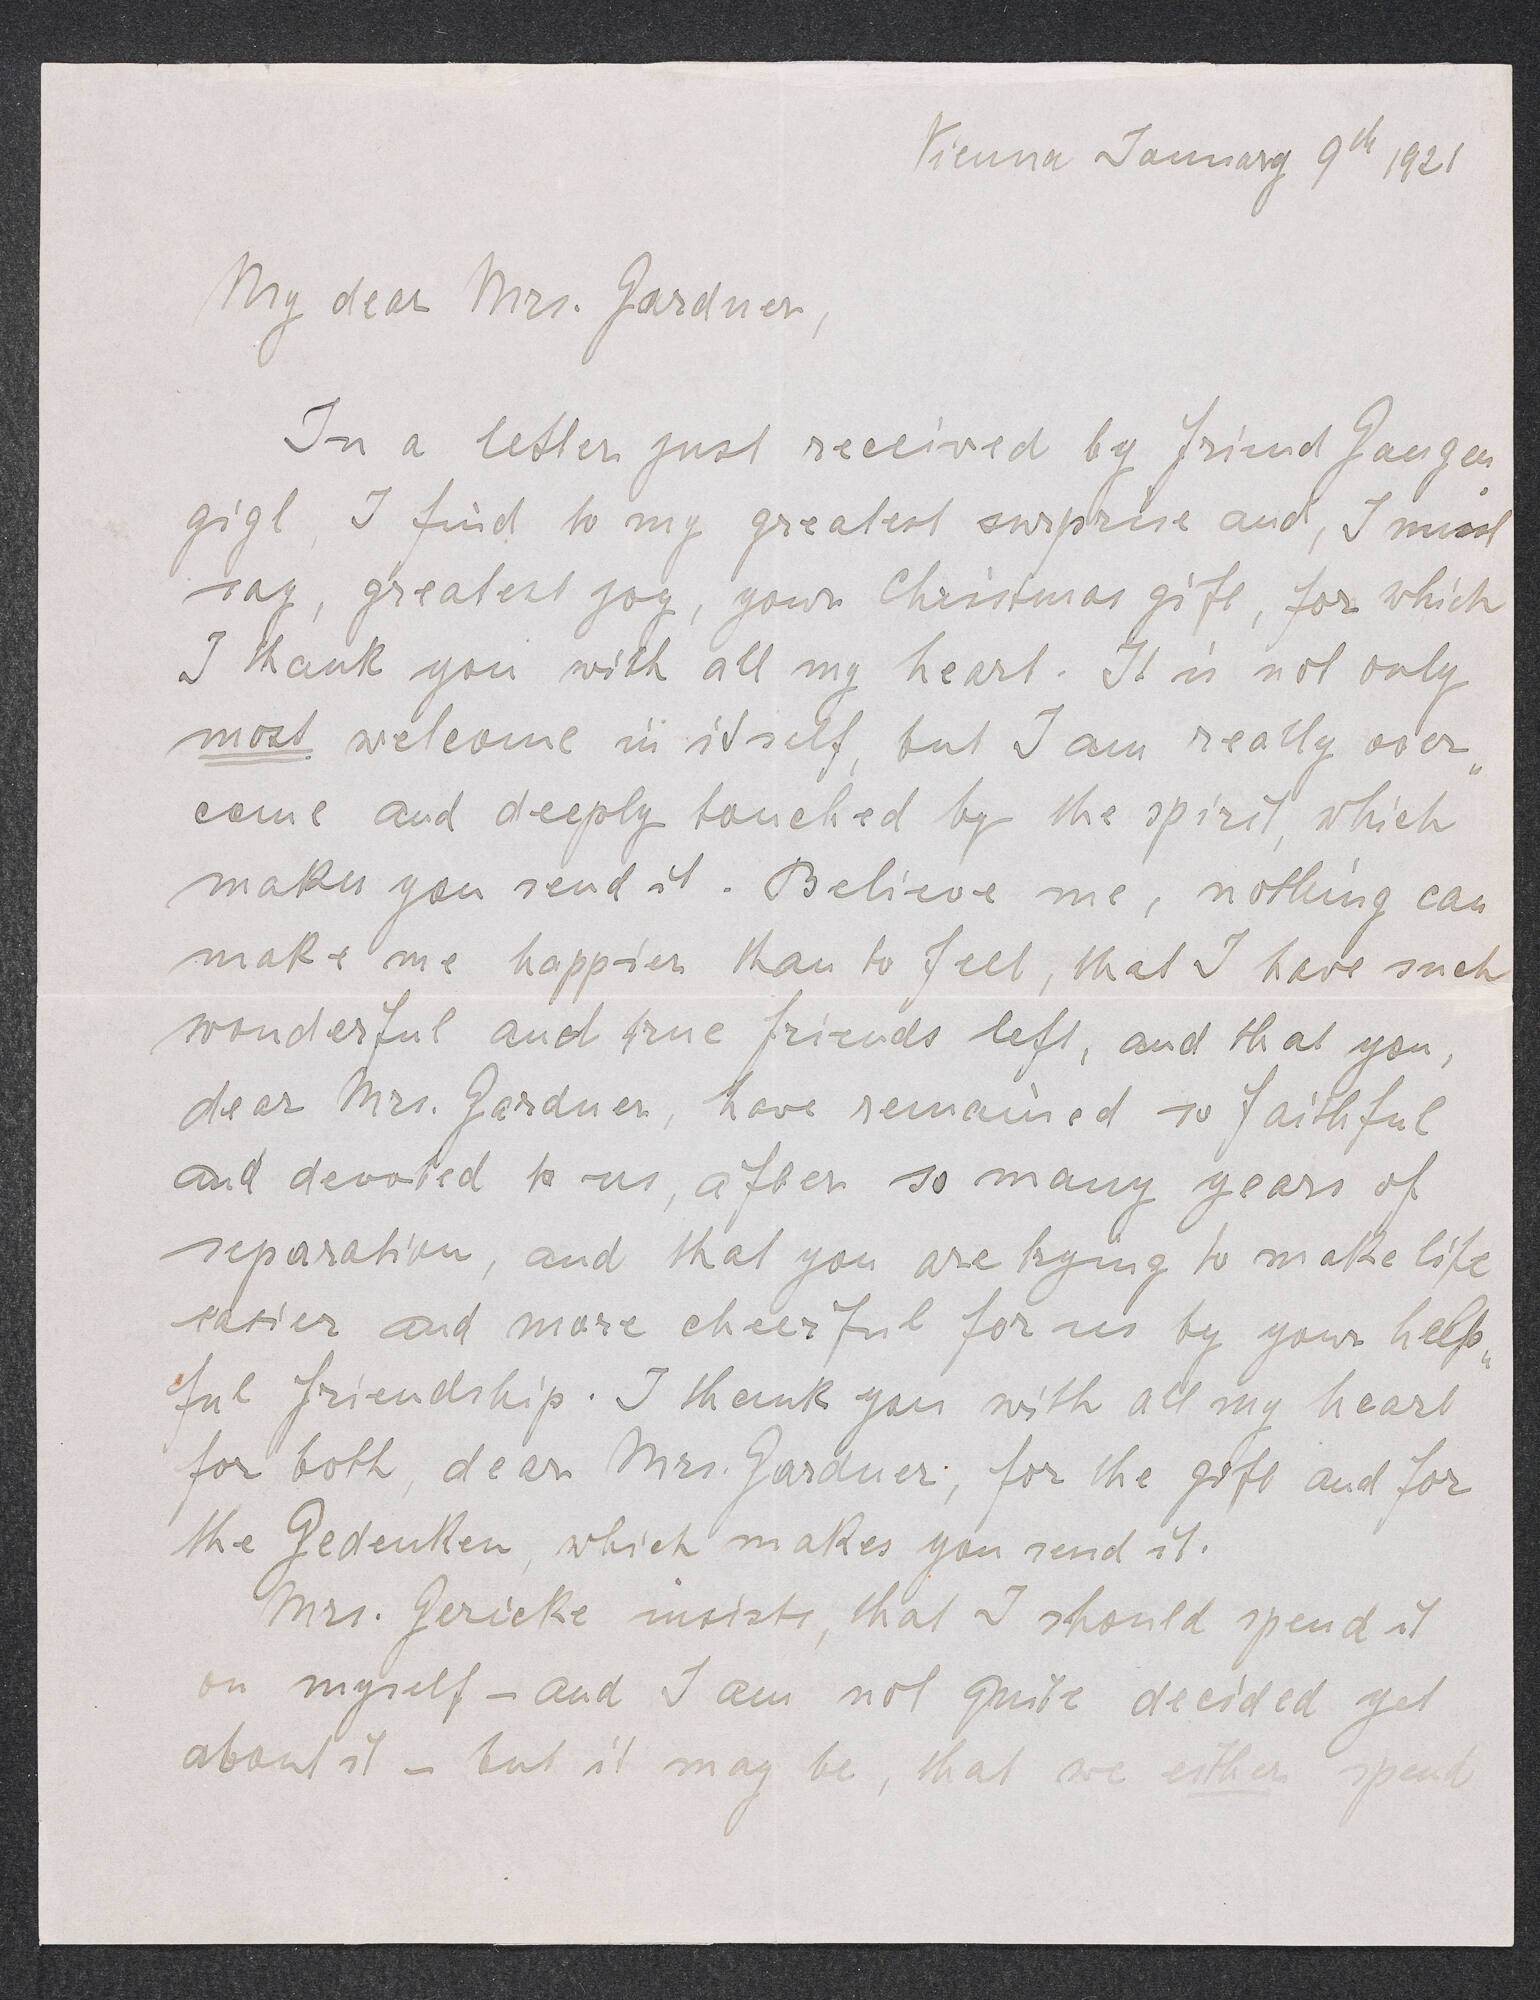 Vienna January 9th 1921
My dear Mrs. Gardner,
In a letter just received by friend Gaugen
gigl, I find to my greatest surprise and, I must
say, greatest joy, your Christmas gift, for which
I thank you with all my heart. It is not only
most welcome in itself, but I am really over„
come and deeply touched by the spirit, which
makes you send it. Believe me, nothing can
make me happier than to feel, that I have such
wonderful and true friends left, and that you,
dear Mrs. Gardner, have remained so faithful
and devoted to us, after so many years of
separation, and that you are trying to make life
easier and more cheerful for us by your help„
ful friendship. I thank you with all my heart
for both, dear Mrs. Gardner, for the gift and for
the Gedenken, which makes you send it.
Mrs. Gericke insists, that I should spend it
on myself – and I am not quite decided yet
about it – but it may be, that we either spend